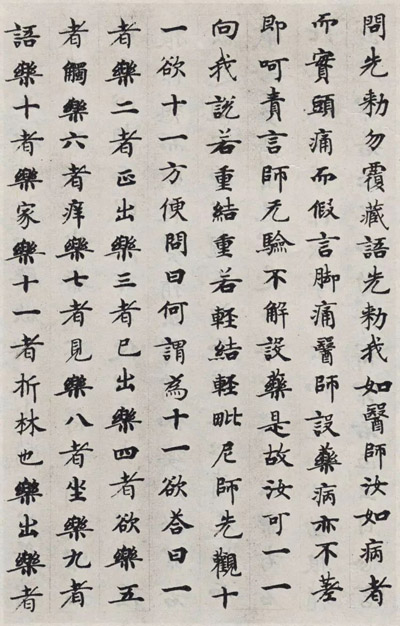 問先勑勿覆藏語先勑我如醫師汝如病者
而實頭痛而假言脚痛醫師設藥病亦不差
即呵責言師无驗不解設藥是故汝可一一
向我說若重結重若輕結輕毗尼師先觀十
一欲十一方便問曰何謂為十一欲答曰一
者樂二者正出樂三者已出樂四者欲樂五
者觸樂六者痒樂七者見樂八者坐樂九者
語樂十者樂家樂十一者折林也樂出樂者